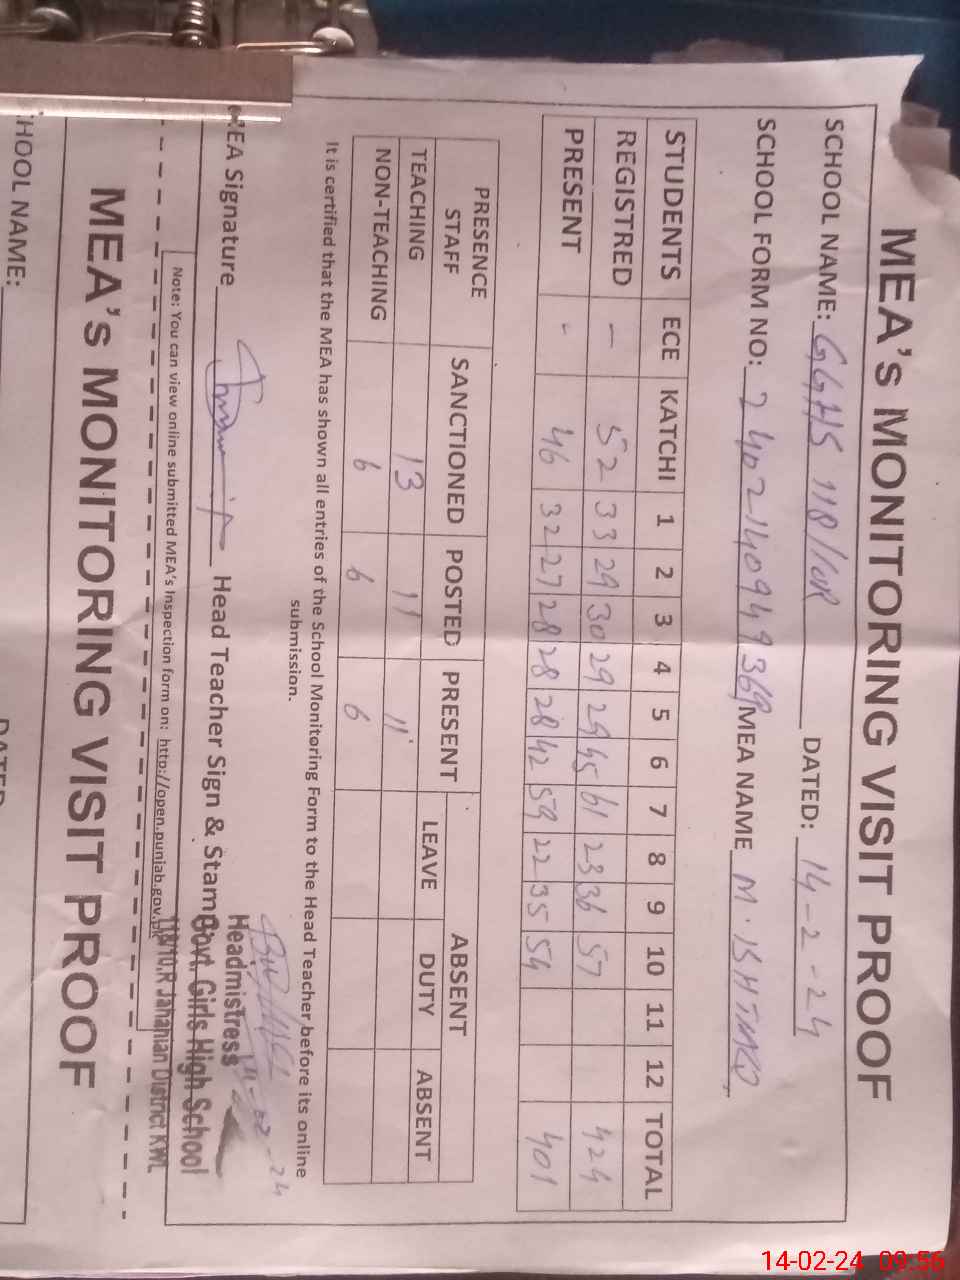 MEA's MONITORING VISIT PROOF
SCHOOL NAME: GGHS 118/10R DATED: 14-2-24
SCHOOL FORM NO: 2402140949369 MEA NAME M.
STUDENTS ECE KATCHI 1 2 3 4 5 6 7 8 9 10 11 12 TOTAL
REGISTRED - 52 33 29 30 29 29 45 61 23 36 57 424
PRESENT - 46 32 27 28 28 28 42 59 22 35 54 401
PRESENCE STAFF SANCTIONED POSTED PRESENT ABSENT
LEAVE DUTY ABSENT
TEACHING 13 11 11
NON-TEACHING 6 6 6
It is certified that the MEA has shown all entries of the School Monitoring Form to the Head Teacher before its online
submission.
MEA Signature Head Teacher Sign & Stamp
Headmistress
Govt. Girls High School
118/10.R Jahanian District KWL
Note: You can view online submitted MEA's Inspection form on: http://open.punjab.gov.pk
MEA's MONITORING VISIT PROOF
SCHOOL NAME: DATED
14-02-24 09:56